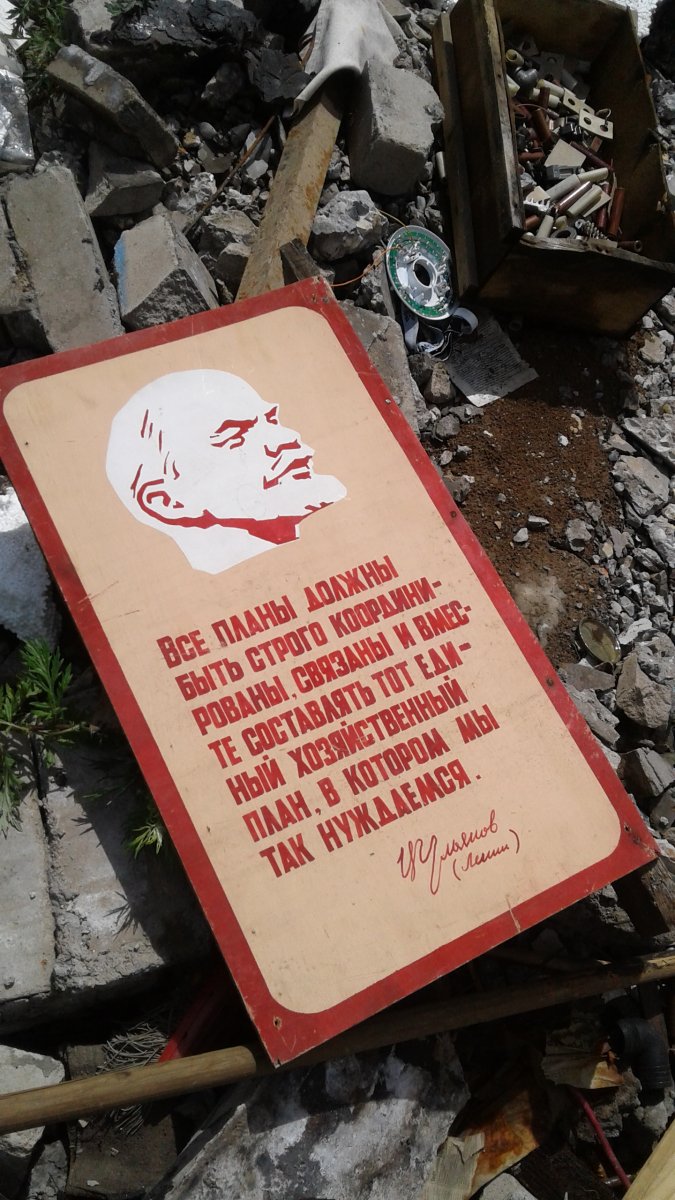 Все планы должны
быть строго координи-
рованы, связаны и вмес-
те составлять тот еди-
ный хозяйственный
план, в котором мы
так нуждаемся.
В Ульянов
(Ленин)